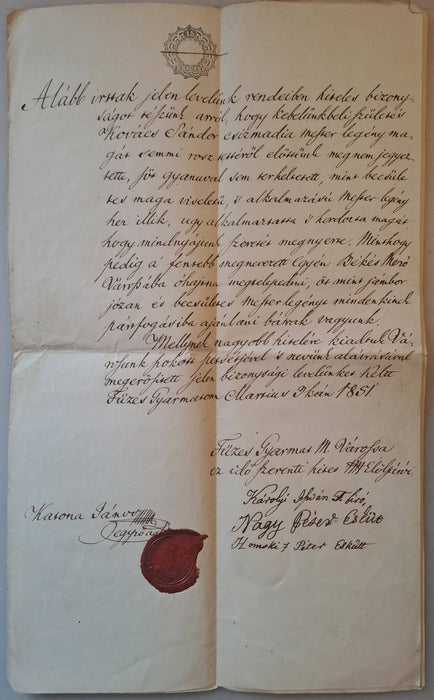 Alább irttak jelen levelünk rendeiben hiteles bizony-
ságot teszünk arról, hogy kebelünkbeli születés
Kovács Sándor csizmadia Mester legény ma-
gát semmi rosz tettéről előttünk megnem jegyez
tette, sőt gyanuval sem terheltetett, mint becsüle
tes maga viseletü, s alkalmazásu Mester legény
hez illik, ugy alkalmaztatta s hordozta magát
hogy mindnyájunk szeretét megnyerte. Minthogy
pedig a fentebb megnevezett egyén Békés Mező
Várossába óhajtna megtelepedni, őt mint jámbor
józan és becsületes Mesterlegényt mindenkinek
pártfogásába ajánlani bátrak vagyunk.
Mellynek nagyobb hitelére kiadtuk Vá-
rosunk pecsétjével s nevünk aláirásával
megerősitett jelen bizonysági levelünket Kelt
Füzes Gyarmaton Martius 9kén 1851
Füzes Gyarmat M. Várossa
ez idő szerénti hites Elöljárói
Károlyi István F biró
Nagy Péter Esküt
Homoki Péter Eskütt
Katona János
jegyző